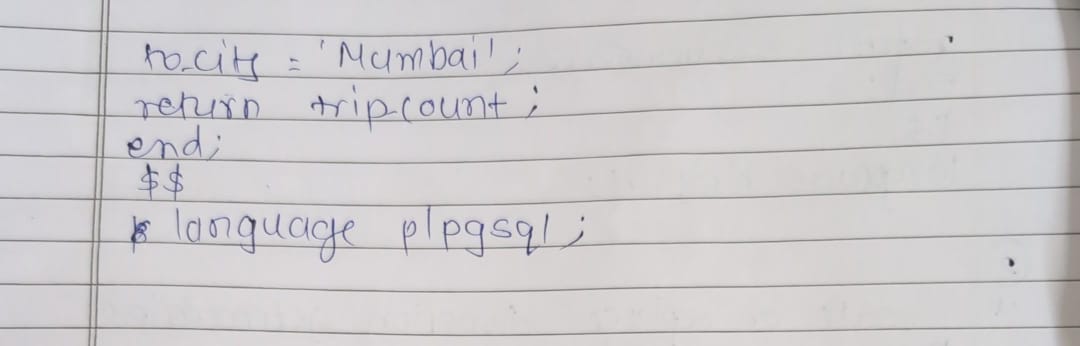 to_city = 'Mumbai';
return tripcount;
end;
$$
language plpgsql;